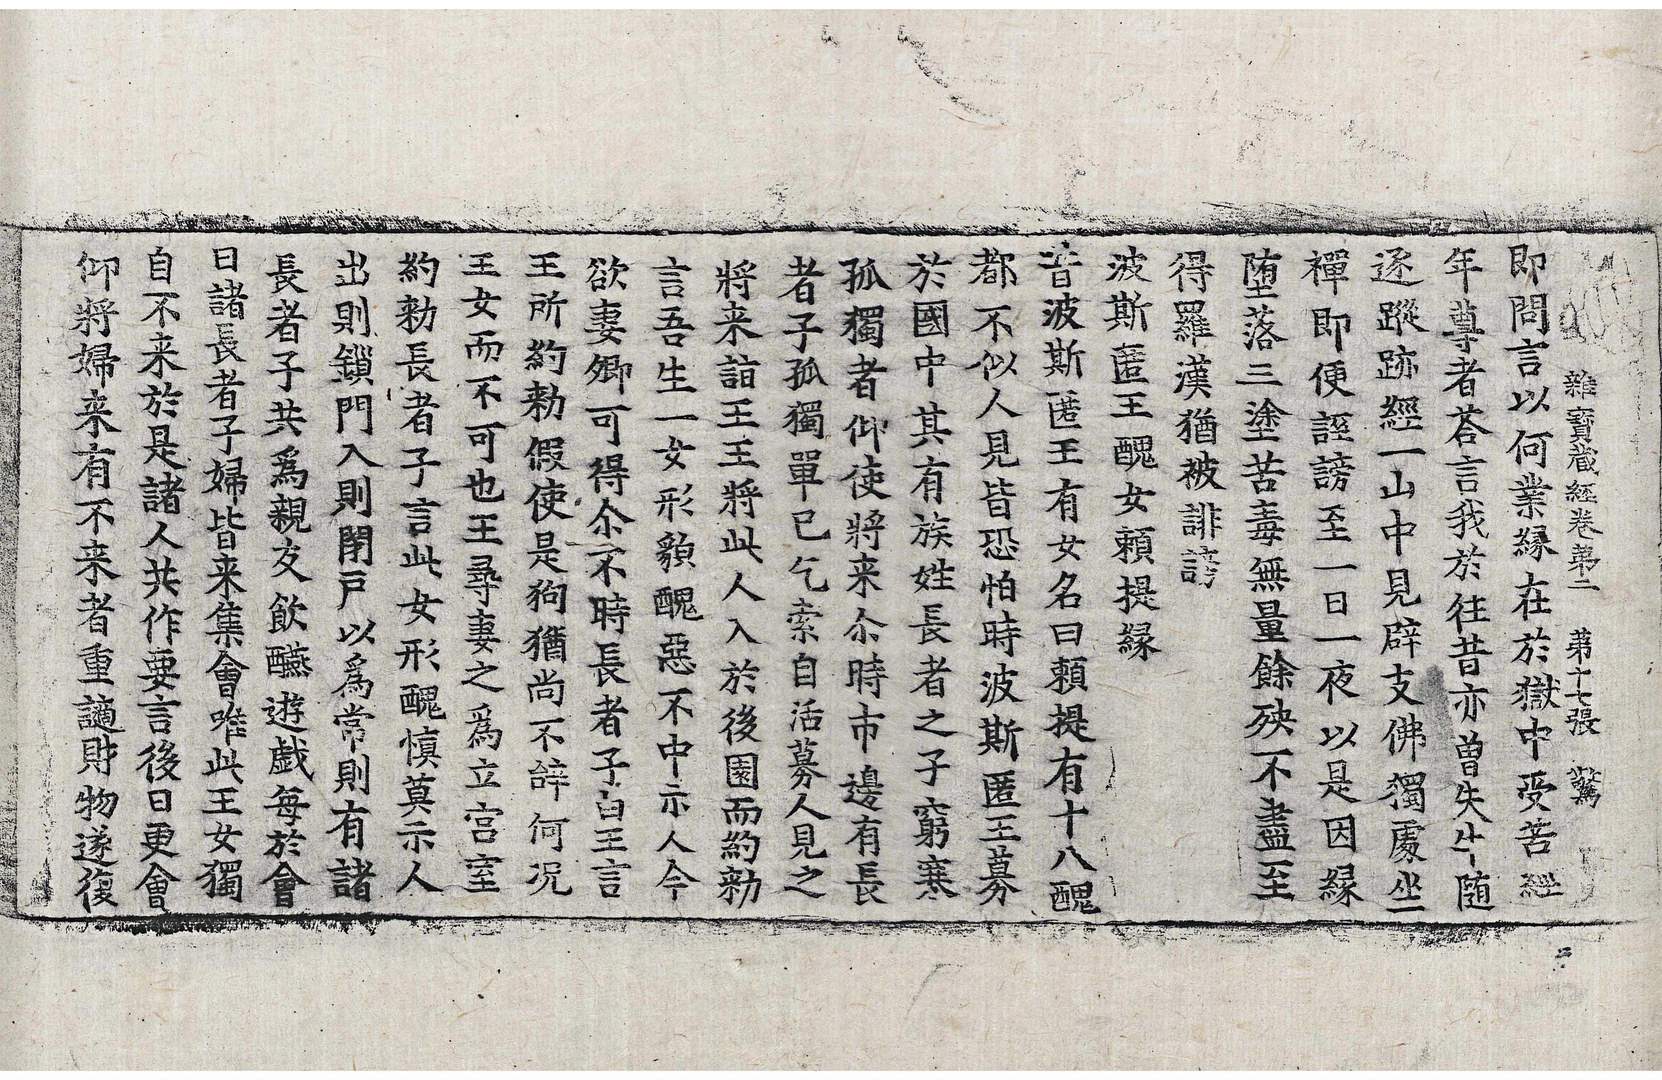 雜寶藏經卷第二　第十七張　驚
即問言以何業緣在於獄中受苦經
年尊者荅言我於往昔亦曽失牛随
逐蹤跡經一山中見辟支佛獨處坐
禪即便誣謗至一日一夜以是因緣
堕落三塗苦毒無量餘殃不盡至
得羅漢猶被誹謗
波斯匿王醜女賴提緣
昔波斯匿王有女名曰賴提有十八醜
都不似人見皆恐怕時波斯匿王募
於國中其有族姓長者之子窮寒
孤獨者仰使將来尒時市邊有長
者子孤獨單己乞索自活募人見之
將来詣王王將此人入於後園而約勑
言吾生一女形貌醜惡不中示人今
欲妻卿可得尒不時長者子白王言
王所約勑假使是狗猶尚不辝何况
王女而不可也王尋妻之爲立宫室
約勑長者子言此女形醜慎莫示人
出則鎖門入則閉户以爲常則有諸
長者子共爲親友飲醼遊戲每於會
日諸長者子婦皆来集會唯此王女獨
自不来於是諸人共作要言後日更會
仰將婦来有不来者重讁財物遂復